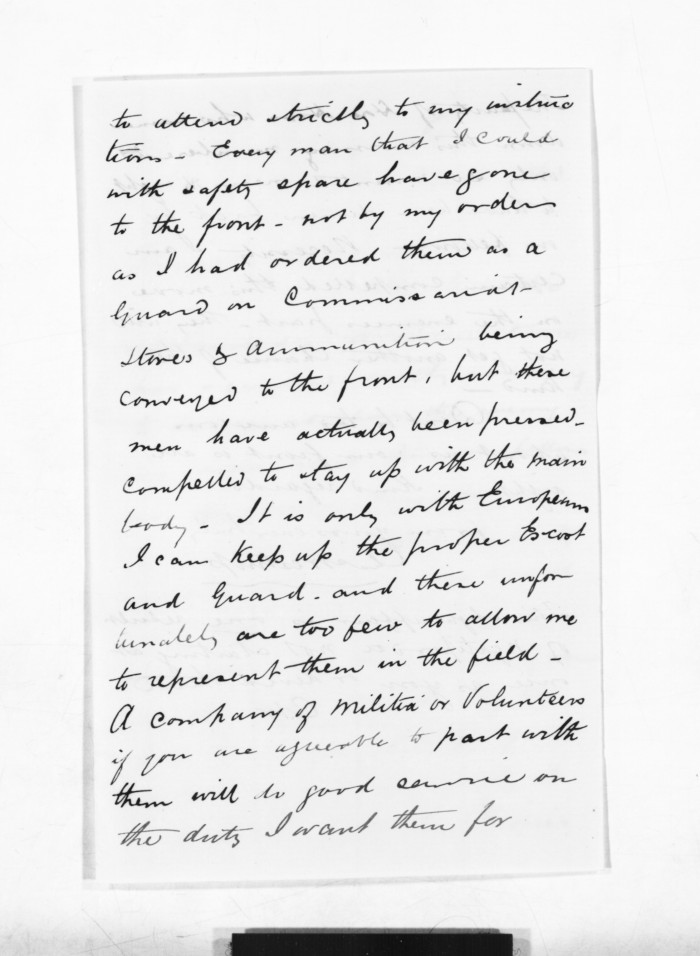 to attend strictly to my instruc
tions - Every man that I could
with safety spare have gone
to the front - not by my orders
as I had ordered them as a
Guard on Commissariat -
Stores & Ammunition being
conveyed to the front, but these
men have actually been pressed -
compelled to stay up with the main
body - It is only with Europeans
I can keep up the proper Escort
and Guard - and these unfor
tunately are too few to allow me
to represent them in the field -
A company of Militia or Volunteers
if you are agreeable to part with
them will do good service on
the duty I want them for